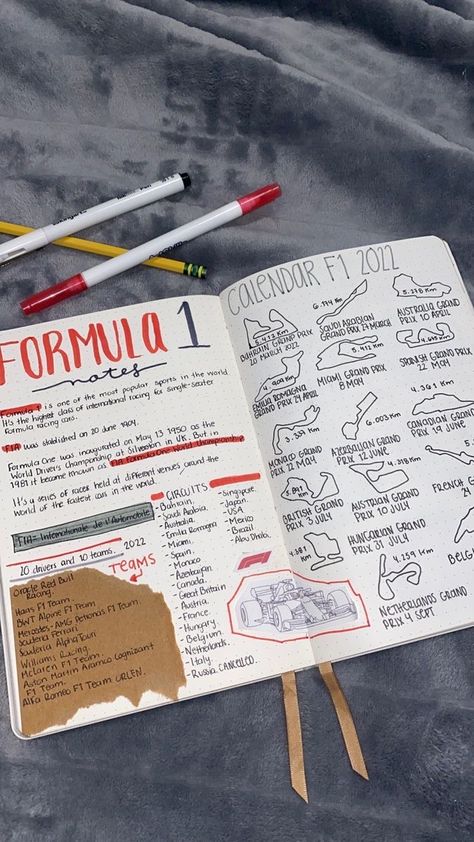 FORMULA 1
notes
Formula 1 is one of the most popular sports in the world
It's the highest class of international racing for single-seater
Formula racing cars.
FIA was stablished on 20 june 1904.
Formula One was inaugurated on May 13 1950 as the
World Drivers Championship at Silverston in UK. But in
1981 it became known as FIA Formula One World Championship
It's a series of races held at different venues around the
world of the fastest cars in the world.
FIA= Internationale de l'Automobile
10 drivers and 10 teams. 2022
TEAMS
Oracle Red Bull
Racing.
Haas F1 Team.
BWT Alpine F1 Team
Mercedes-AMG Petronas F1 Team
Scuderia Ferrari
Scuderia AlphaTauri
Williams Racing.
McLaren F1 Team.
Aston Martin Aramco Cognizant
F1 Team.
Alfa Romeo F1 Team ORLEN.
CIRCUITS
- Bahrain.
- Saudi Arabia.
- Australia.
- Emilia Romagna
- Miami.
- Spain.
- Monaco
- Azerbaijan.
- Canada.
- Great Britain
- Austria.
- France.
- Hungary.
- Belgium.
- Netherlands.
- Italy.
- Russia CANCELLED.
- Singapore.
- Japan.
- USA
- Mexico
- Brazil
- Abu Dhabi.
CALENDAR F1 2022
5.412 Km
BAHRAIN GRAND PRIX
20 MARCH 2022
6.174 Km
SAUDI ARABIAN
GRAND PRIX 27 MARCH
5.278 Km
AUSTRALIA GRAND
PRIX 10 APRIL
4.909 Km
EMILIA ROMAGNA
GRAND PRIX 24 APRIL
5.412 Km
MIAMI GRAND PRIX
8 MAY
4.675 Km
SPANISH GRAND PRIX
22 MAY
3.337 Km
MONACO GRAND PRIX
6.003 Km
AZERBAIJAN GRAND
PRIX 12 JUNE
4.361 Km
CANADIAN GRAND
PRIX 19 JUNE
5.891 Km
BRITISH GRAND
PRIX 3 JULY
4.318 Km
AUSTRIAN GRAND
PRIX 10 JULY
FRENCH
4.381 Km
HUNGARIAN GRAND
PRIX 31 JULY
4.259 Km
NETHERLANDS GRAND
PRIX 4 SEPT.